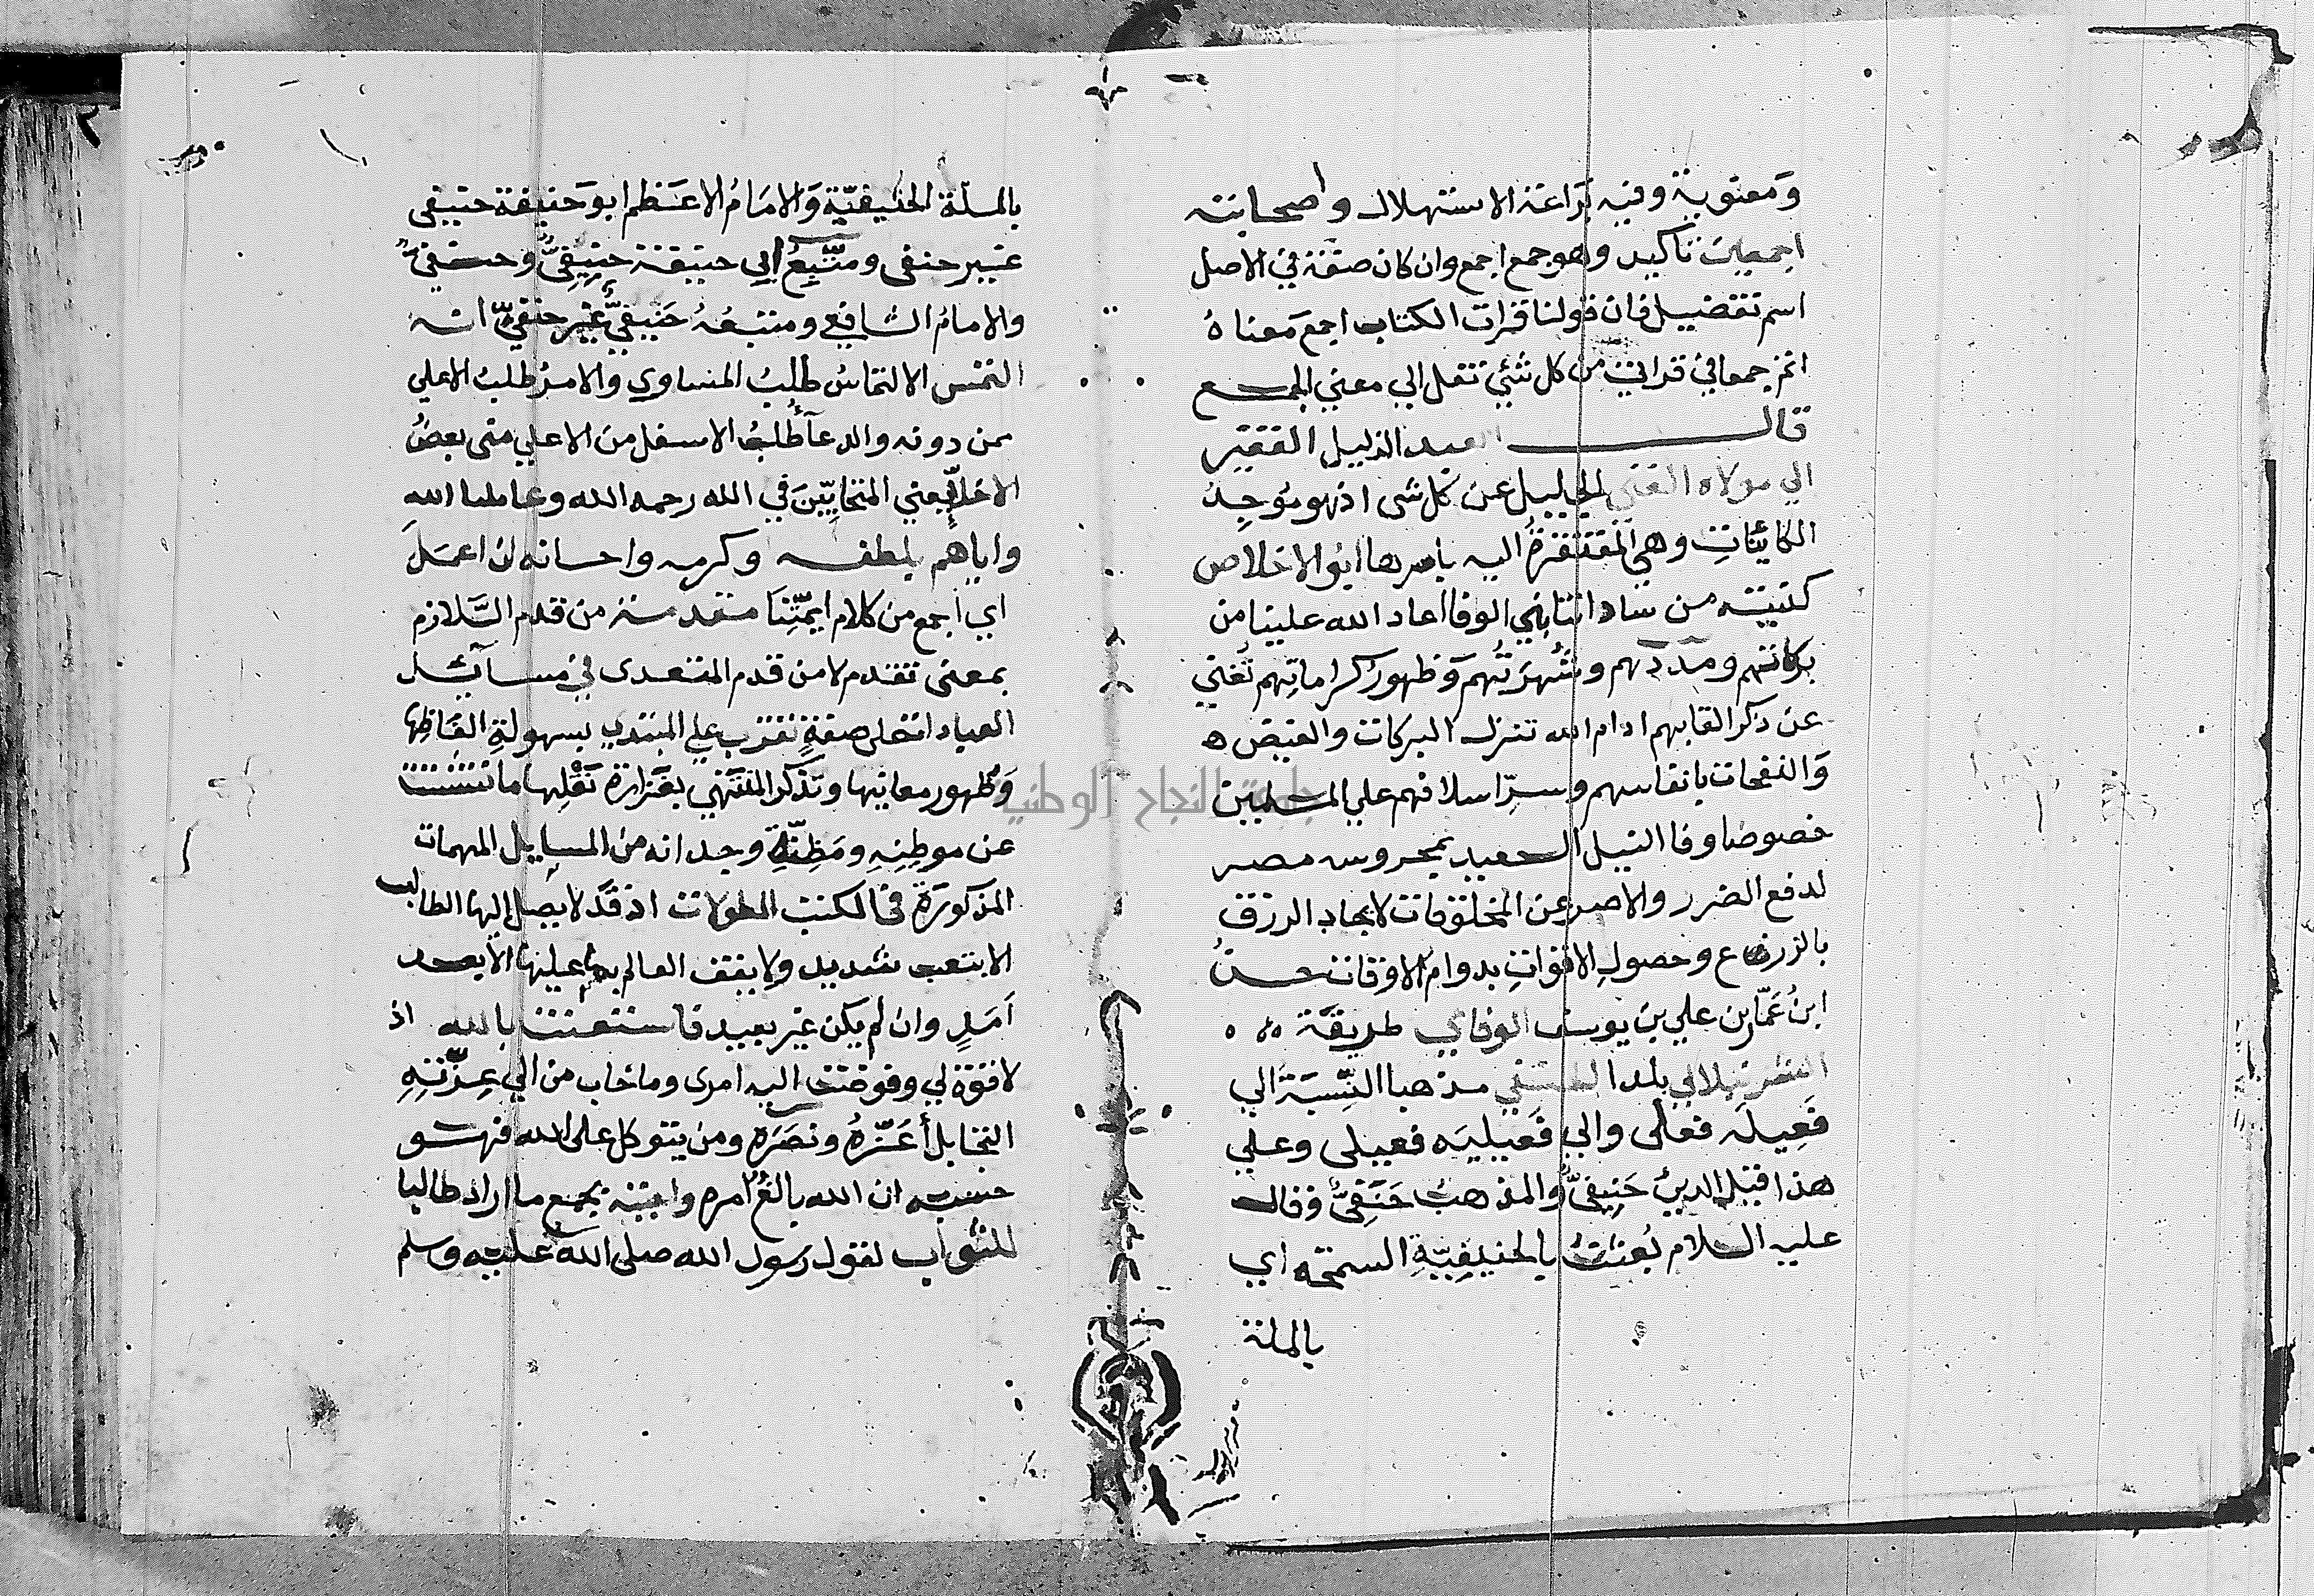 ومعنوية وفيه براعة الاستهلال وأصحابته
اجمعين تاكيد وهو جمع اجمع وان كان صفة في الاصل
اسم تفضيل فان قولنا قرات الكتاب اجمع معناه
اتم جمعا في قراتي من كل شئ نقل الي معني الجمع
قال العبد الذليل الفقير
الي مولاه الغني الجليل عن كل شي اذ هو موجد
الكائنات وهي المفتقرة اليه باسرها ابو الاخلاص
كنيته من ساداتنا بني الوفا اعاد الله علينا من
بركاتهم ومددهم وشهرتهم وظهور كراماتهم تغني
عن ذكر القابهم ادام الله تنزل البركات والفيض
والنفحات بانفاسهم وسر اسلافهم علي المسلمين
خصوصا وفا النيل السعيد بمحروسه مصر
لدفع الضرر والاصر عن المخلوقات لايجاد الرزق
بالزرع وحصول الاقوات بدوام الاوقات حسن
ابن عمار بن علي بن يوسف الوفاي طريقة
الشرنبلالي بلدا الحنفي مذهبا النسبة الي
فعيله فعلى والي فعيليه فعيلى وعلي
هذا قيل الدين حنيفي والمذهب حنفي وقال
عليه السلام بعثت بالحنيفية السمحه اي
بالملة
٢
بالملة الحنيفية والامام الاعظم ابو حنيفة حنيفى
غير حنفى ومتبع ابي حنيفة حنيفي وحنفي
والامام الشافعي ومتبعه حنيفي غير حنفي انه
التمس الالتماس طلب المساوي والامر طلب الاعلي
ممن دونه والدعآ طلب الاسفل من الاعلي منى بعض
الاخلا يعني المتحابين في الله رحمه الله وعاملنا الله
واياهم بلطفه وكرمه واحسانه ان اعمل
اي اجمع من كلام ايمتنا مقدمة من قدم اللازم
بمعنى تقدم لا من قدم المتعدى في مسآئل
العبادات على صفة تقرب علي المبتدي بسهولة الفاظها
وظهور معانيها وتذكر المنتهي بغزارة نقلها ما تشتت
عن موطنه ومظنة وجدانه من المسايل المهمات
المذكورة فى الكتب المطولات اذ قد لا يصل اليها الطالب
الا بتعب شديد ولا يقف العالم بها عليها الا بعد
امد وان لم يكن غير بعيد فاستعنت بالله اذ
لا قوة لي وفوضت اليه امرى وما خاب من الي عزته
التجا بل أعزه ونصره ومن يتوكل على الله فهو
حسبه ان الله بالغ امره واجبته بجمع ما اراد طالبا
للثواب لقول رسول الله صلى الله عليه وسلم
جامعة النجاح الوطنية